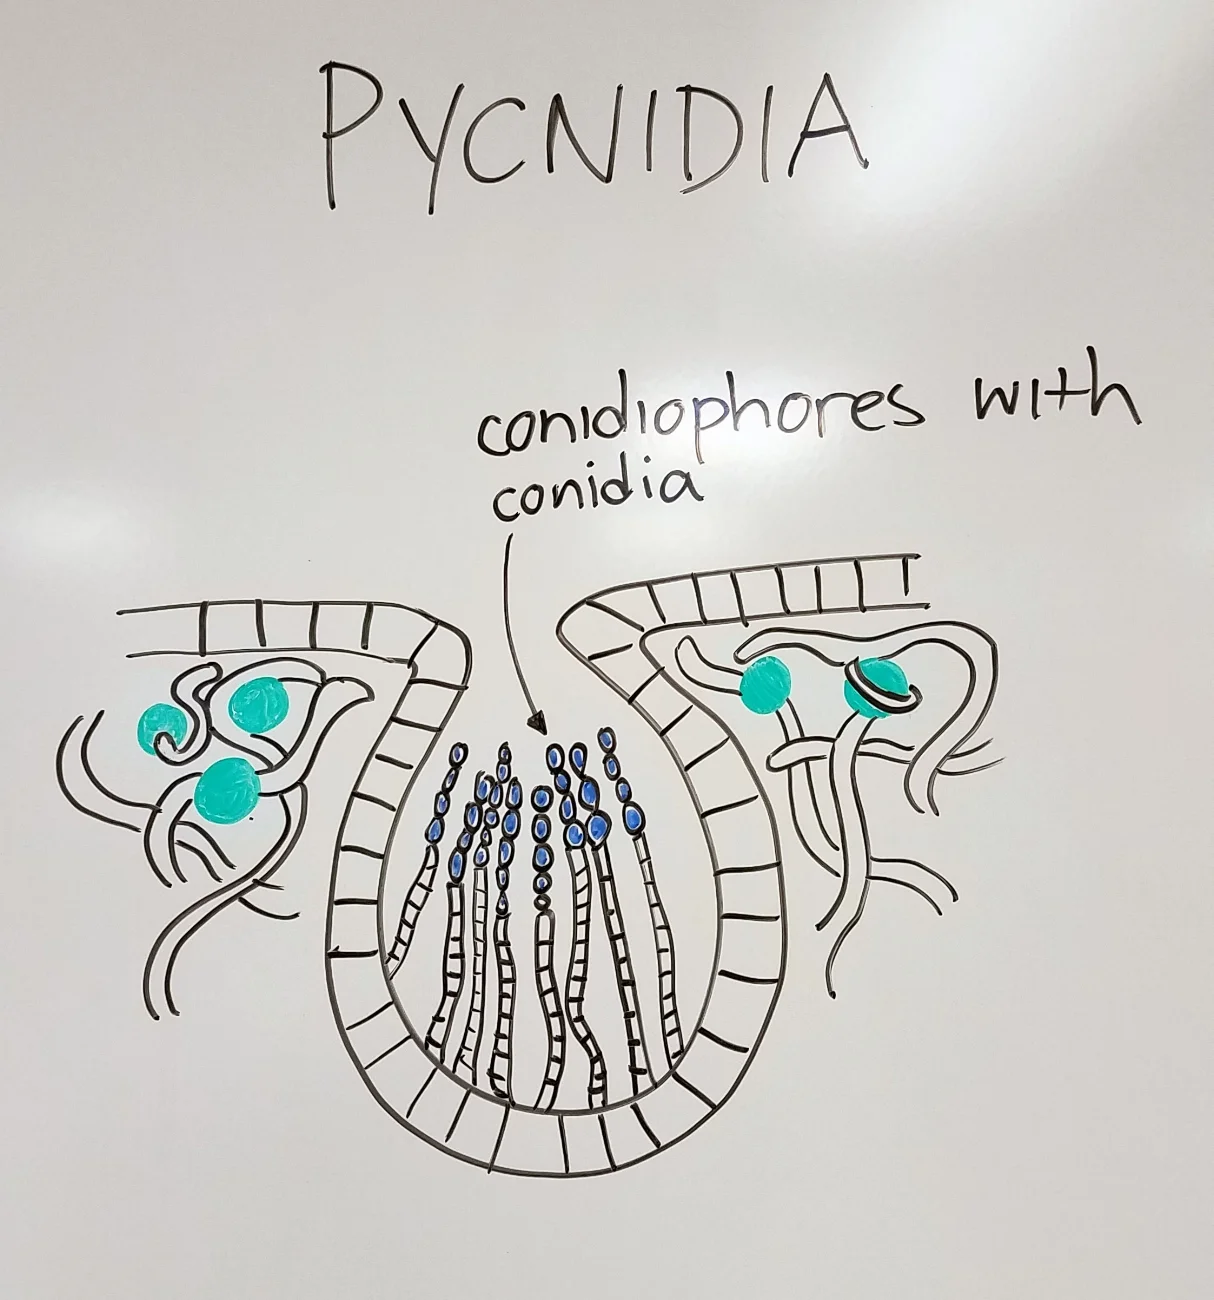 PYCNIDIA
conidiophores with
conidia